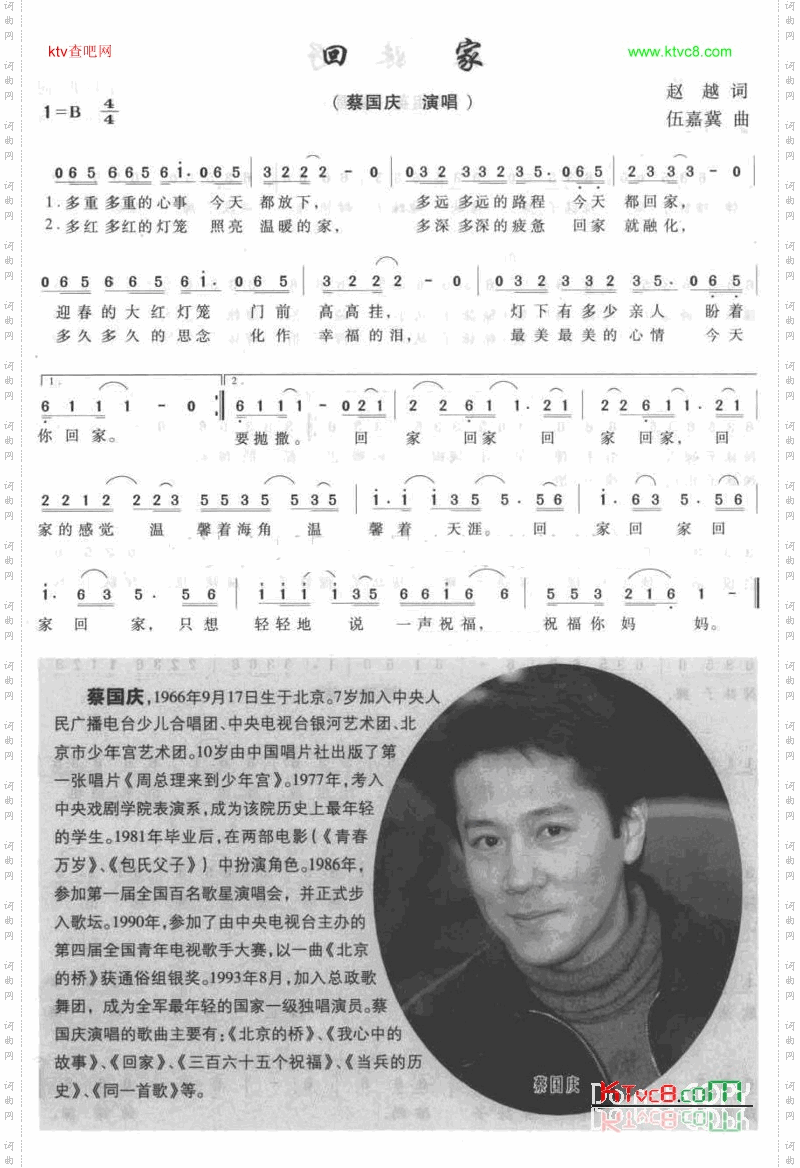 ktv查吧网
回 家
www.ktvc8.com
(蔡国庆 演唱)
1=B 4/4
赵 越 词
伍嘉冀 曲
0 6 5 6 6 5 6 i· 0 6 5 | 3 2 2 2 - 0 | 0 3 2 3 3 2 3 5· 0 6 5 | 2 3 3 3 - 0 |
1.多重 多重的心事 今天 都放下, 多远 多远的路程 今天 都回家,
2.多红 多红的灯笼 照亮 温暖的家, 多深 多深的疲惫 回家 就融化,
0 6 5 6 6 5 6 i· 0 6 5 | 3 2 2 2 - 0 | 0 3 2 3 3 2 3 5· 0 6 5 |
迎春的大红灯笼 门前 高高挂, 灯下有多少亲人 盼着
多久多久的思念 化作 幸福的泪, 最美最美的心情 今天
1. 2.
6 1 1 1 - 0 :‖ 6 1 1 1 - 0 2 1 | 2 2 6 1 1· 2 1 | 2 2 6 1 1· 2 1 |
你回家。 要抛撒。 回 家 回家 回 家 回家, 回
2 2 1 2 2 2 3 5 5 3 5 5 3 5 | i· i i 3 5 5· 5 6 | i· 6 3 5· 5 6 |
家的感觉 温 馨着海角 温 馨着 天涯。 回 家回 家回
i· 6 3 5· 5 6 | i i i i 3 5 6 6 1 6 6 | 5 5 3 2 1 6 1 - ‖
家 回 家, 只想 轻轻地 说 一声祝福, 祝福你妈 妈。
蔡国庆,1966年9月17日生于北京。7岁加入中央人
民广播电台少儿合唱团、中央电视台银河艺术团、北
京市少年宫艺术团。10岁由中国唱片社出版了第
一张唱片《周总理来到少年宫》。1977年,考入
中央戏剧学院表演系,成为该院历史上最年轻
的学生。1981年毕业后,在两部电影(《青春
万岁》、《包氏父子》)中扮演角色。1986年,
参加第一届全国百名歌星演唱会，并正式步
入歌坛。1990年,参加了由中央电视台主办的
第四届全国青年电视歌手大赛,以一曲《北京
的桥》获通俗组银奖。1993年8月,加入总政歌
舞团，成为全军最年轻的国家一级独唱演员。蔡
国庆演唱的歌曲主要有:《北京的桥》、《我心中的
故事》、《回家》、《三百六十五个祝福》、《当兵的历
史》、《同一首歌》等。
蔡国庆
KTvc8.com
词曲网